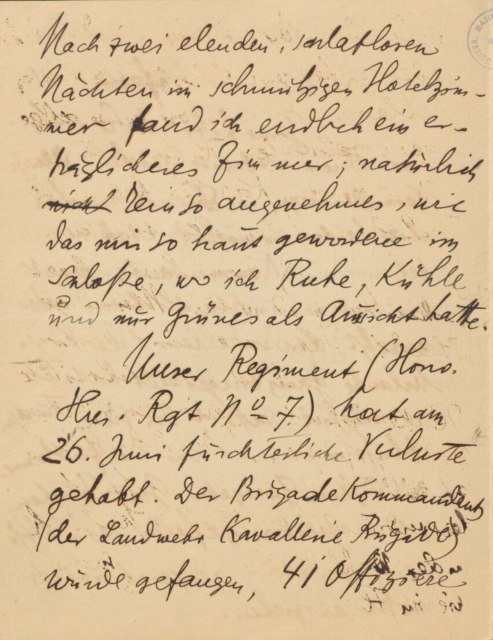 Nach zwei elenden, schlaflosen
Nächten im schmutzigen Hotelzim-
mer fand ich endlich ein er-
träglicheres Zimmer; natürlich
nicht kein so angenehmes, wie
das mir so traut gewordene im
Schloße, wo ich Ruhe, Kühle
und nur Grünes als Aussicht hatte.
Unser Regiment (Honv.
Hus. Rgt No 7.) hat am
26. Juni fürchterliche Verluste
gehabt. Der Brigadekommandant
(der Landwehr Kavallerie Brigade)
wurde gefangen, 41 Offiziere